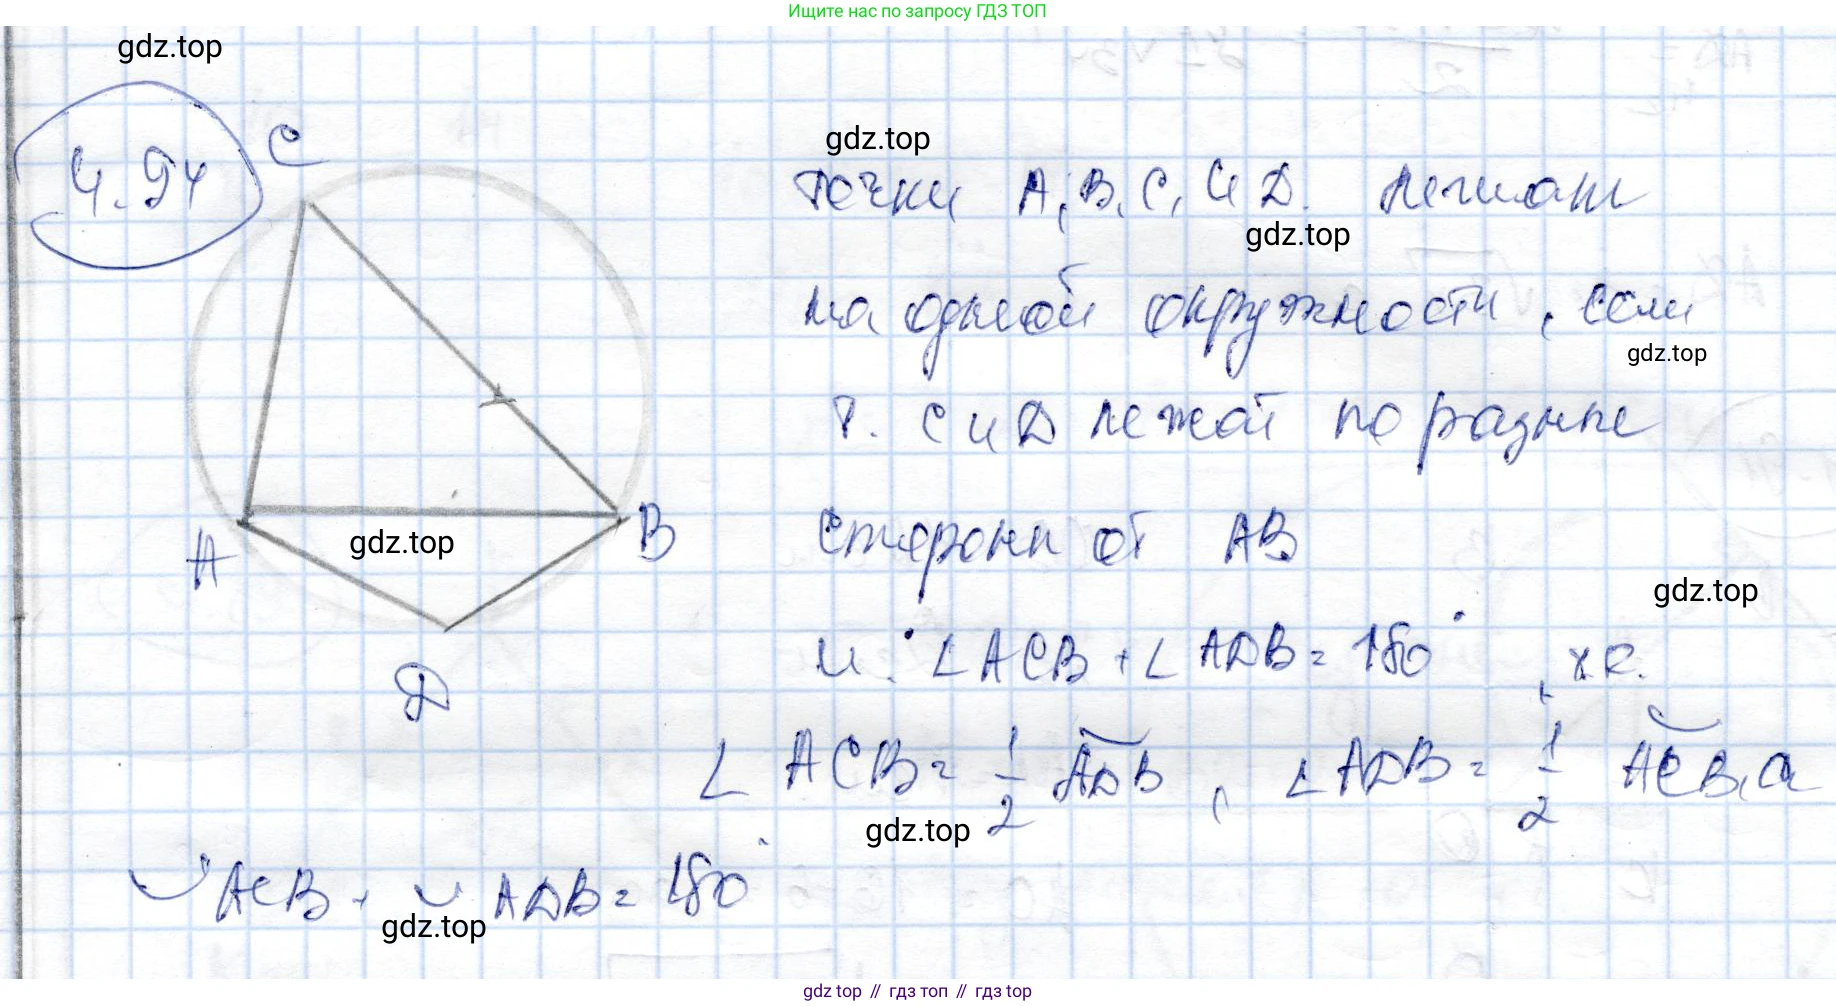 Ищите нас по запросу ГДЗ ТОП
gdz.top
4.94
C
gdz.top
Точки A, B, C, и D. лежат
gdz.top
на одной окружности, если
gdz.top
т. C и D лежат по разные
A
gdz.top
B
стороны от AB
gdz.top
D
и ∠ACB + ∠ADB = 180°, т.к.
∠ACB = 1/2 ADB, ∠ADB = 1/2 ACB, а
gdz.top
◡ACB + ◡ADB = 180°
gdz.top
gdz top // гдз топ // гдз top